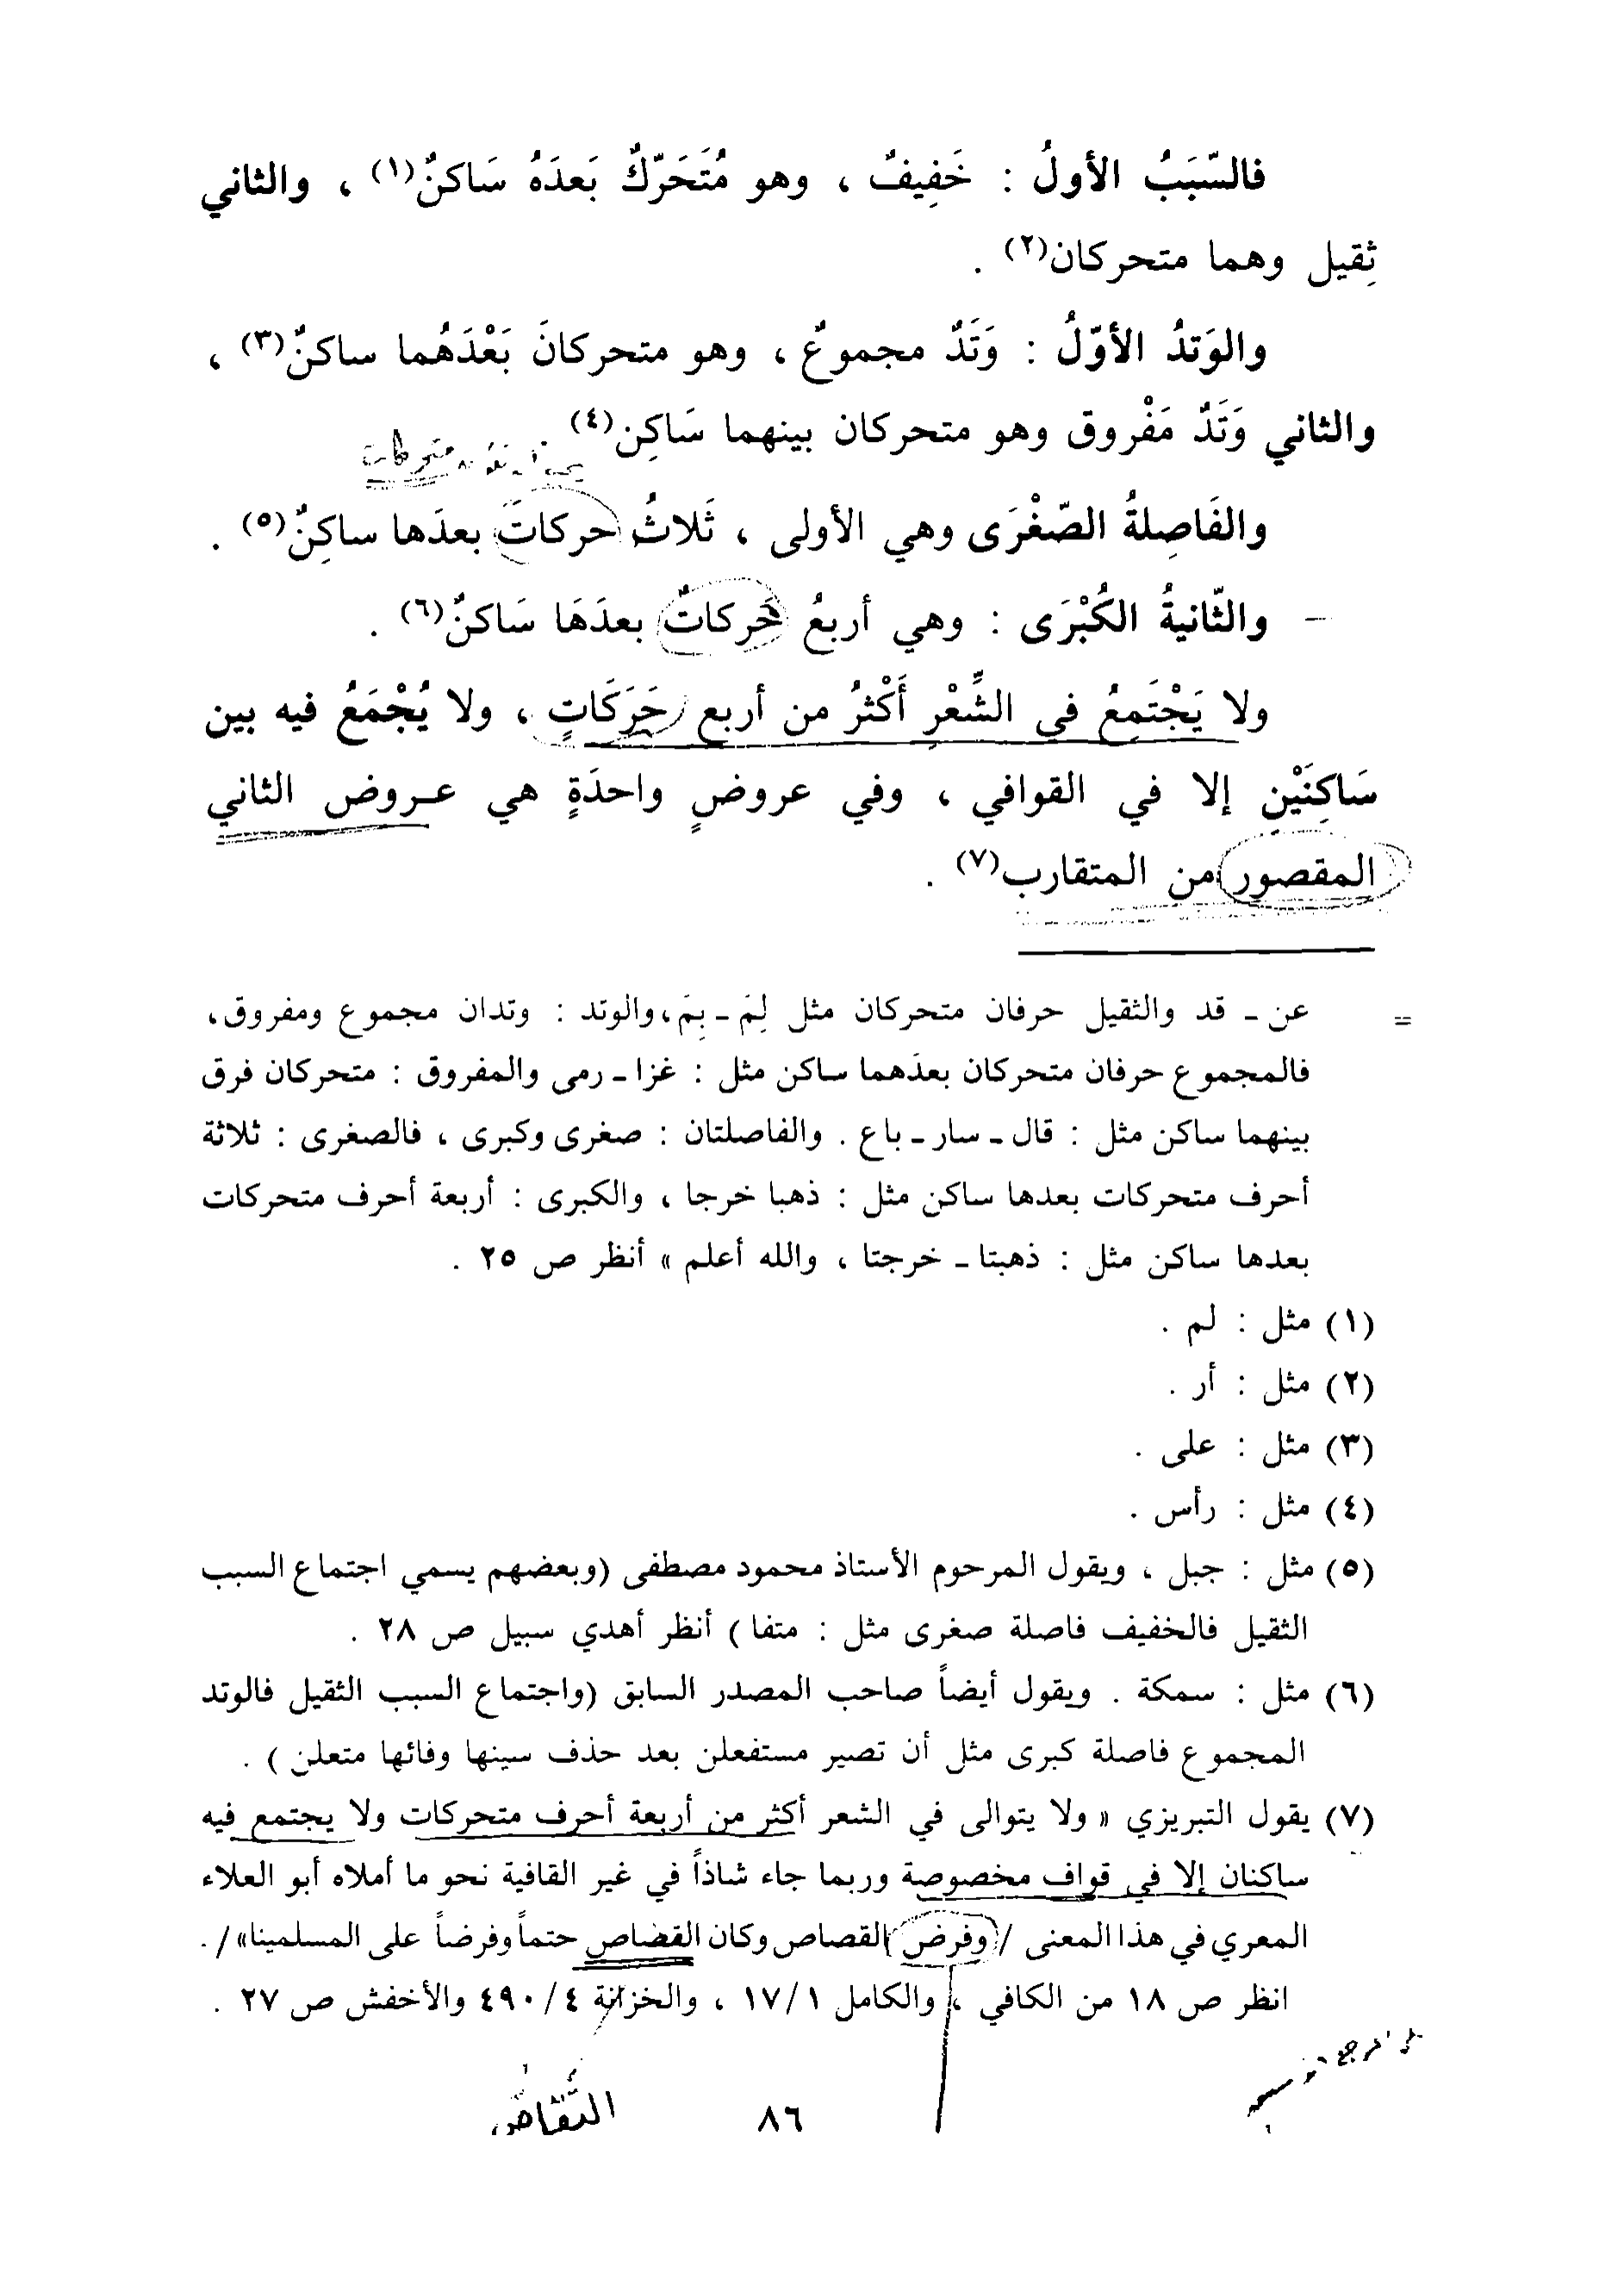 فالسّبَبُ الأولُ : خَفِيفٌ ، وهو مُتَحَرّكٌ بَعدَهُ سَاكنٌ(١) ، والثاني
ثِقيل وهما متحركان(٢) .
والوَتدُ الأوّلُ : وَتَدٌ مجموعٌ ، وهو متحركانَ بَعْدَهُما ساكنٌ(٣) ،
والثاني وَتَدٌ مَفْروق وهو متحركان بينهما سَاكِن(٤) .
والفَاصِلةُ الصّغْرَى وهي الأولى ، ثَلاثُ حركاتَ بعدَها ساكِنٌ(٥) .
– والثّانيةُ الكُبْرَى : وهي أربعُ حَركاتٌ بعدَهَا سَاكنٌ(٦) .
ولا يَجْتَمِعُ في الشِّعْرِ أَكْثرُ من أربع حَرَكَاتٍ ، ولا يُجْمَعُ فيه بين
سَاكِنَيْنِ إلا في القوافي ، وفي عروضٍ واحدَةٍ هي عـروض الثاني
المقصور من المتقارب(٧) .
= عن ـ قد والثقيل حرفان متحركان مثل لِمَ ـ بِمَ ،والوتد : وتدان مجموع ومفروق،
فالمجموع حرفان متحركان بعدَهما ساكن مثل : غزا ـ رمى والمفروق : متحركان فرق
بينهما ساكن مثل : قال ـ سار ـ باع . والفاصلتان : صغرى وكبرى ، فالصغرى : ثلاثة
أحرف متحركات بعدها ساكن مثل : ذهبا خرجا ، والكبرى : أربعة أحرف متحركات
بعدها ساكن مثل : ذهبتا ـ خرجتا ، والله أعلم » أنظر ص ٢٥ .
(١) مثل : لم .
(٢) مثل : أر .
(٣) مثل : على .
(٤) مثل : رأس .
(٥) مثل : جبل ، ويقول المرحوم الأستاذ محمود مصطفى (وبعضهم يسمي اجتماع السبب
الثقيل فالخفيف فاصلة صغرى مثل : متفا ) أنظر أهدي سبيل ص ٢٨ .
(٦) مثل : سمكة . ويقول أيضاً صاحب المصدر السابق (واجتماع السبب الثقيل فالوتد
المجموع فاصلة كبرى مثل أن تصير مستفعلن بعد حذف سينها وفائها متعلن ) .
(٧) يقول التبريزي « ولا يتوالى في الشعر أكثر من أربعة أحرف متحركات ولا يجتمع فيه
ساكنان إلا في قواف مخصوصة وربما جاء شاذاً في غير القافية نحو ما أملاه أبو العلاء
المعري في هذا المعنى /(وفرض)القصاص وكان القضاص حتماً وفرضاً على المسلمينا»/ .
انظر ص ١٨ من الكافي ، والكامل ١٧/١ ، والخزانة ٤٩٠/٤ والأخفش ص ٢٧ .
التقاص
٨٦